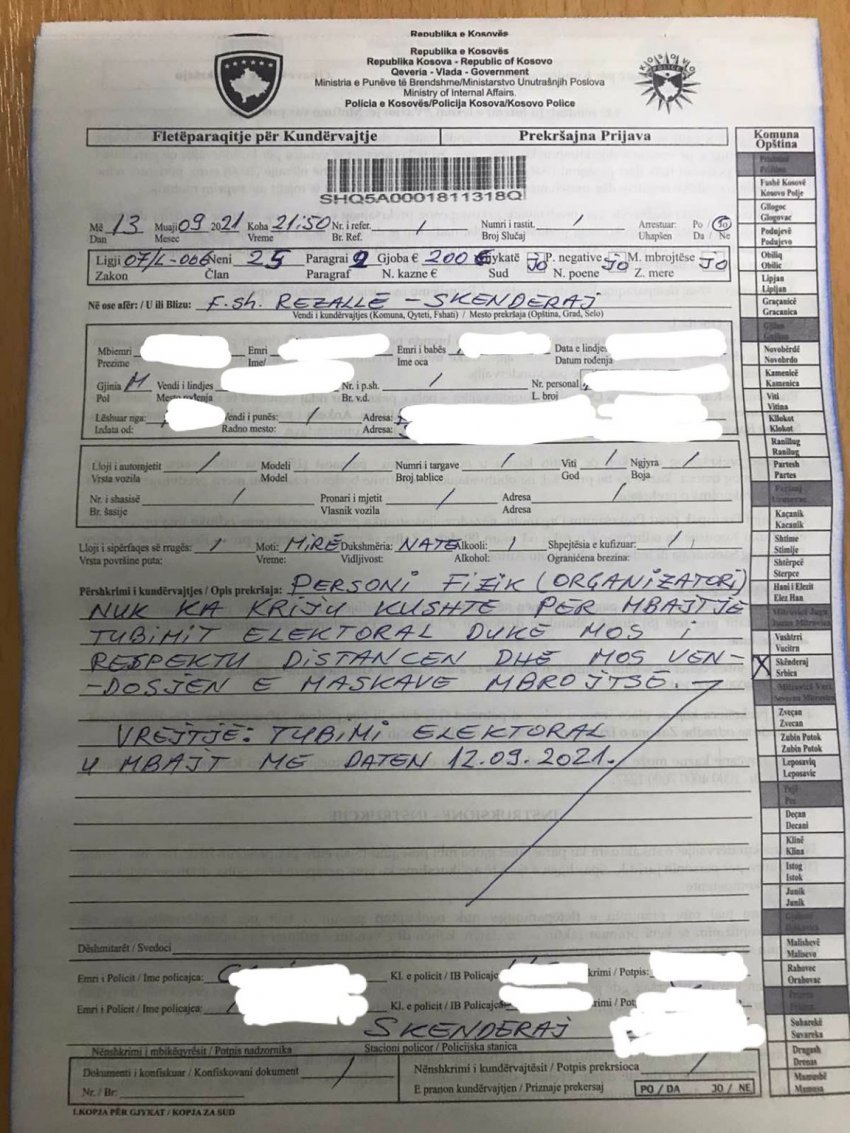 Republika e Kosovës
Republika e Kosovës
Republika Kosova - Republic of Kosovo
Qeveria - Vlada - Government
Ministria e Punëve të Brendshme/Ministarstvo Unutrašnjih Poslova
Ministry of Internal Affairs.
Policia e Kosovës/Policija Kosova/Kosovo Police
KOSOVO
POLICE
Fletëparaqitje për Kundërvajtje Prekršajna Prijava
SHQ5A0001811318Q
Më 13 Muaji 09 2021 Koha 21:50 Nr. i refer. / Numri i rastit. / Arrestuar: Po Jo
Dan Mesec Vreme Br. Ref. Broj Slučaj Uhapšen Da / Ne
Ligji 07/L-006 Neni 25 Paragrai 2 Gjoba € 200€ Gjykatë Jo P. negative Jo M. mbrojtëse Jo
Zakon Član Paragraf N. kazne € Sud N. poene Z. mere
Në ose afër: / U ili Blizu: F. sh. REZALLË - SKENDERAJ
Vendi i kundërvajtjes (Komuna, Qyteti, Fshati) / Mesto prekršaja (Opština, Grad, Selo)
Mbiemri Emri Emri i babës Data e lindjes
Prezime Ime/ Ime oca Datum rođenja
Gjinia M Vendi i lindjes Nr. i p.sh. / Nr. personal
Pol Mesto rođenja Br. v.d. L. broj
Lëshuar nga: Vendi i punës: / Adresa:
Izdata od: Radno mesto: Adresa:
Lloji i automjetit / Modeli / Numri i targave / Viti / Ngjyra /
Vrsta vozila Model Broj tablice God Boja
Nr. i shasisë / Pronari i mjetit / Adresa /
Br. šasije Vlasnik vozila Adresa
Lloji i sipërfaqes së rrugës: / Moti: MIRË Dukshmëria: NATË Alkooli: / Shpejtësia e kufizuar: /
Vrsta površine puta: Vreme: Vidljivost: Alkohol: Ograničena brezina:
Përshkrimi i kundërvajtjes / Opis prekršaja: PERSONI FIZIK (ORGANIZATORI)
NUK KA KRIJU KUSHTE PËR MBAJTJE
TUBIMIT ELEKTORAL DUKË MOS I
RESPEKTU DISTANCEN DHE MOS VEN-
-DOSJEN E MASKAVE MBROJTSË. -
VREJTJE: TUBIMI ELEKTORAL
U MBAJT ME DATEN 12.09.2021.
Dëshmitarët / Svedoci
Emri i Policit / Ime policajca: Kl. e policit / IB Policajc krimi / Potpis:
Emri i Policit / Ime policajca: Kl. e policit / IB Policajca krimi / Potp
SKENDERAJ
Nënshkrimi i mbikëqyrësit / Potpis nadzornika Stacioni policor / Policijska stanica
Dokumenti i konfiskuar / Konfiskovani dokument / Nënshkrimi i kundërvajtësit / Potpis prekrsioca /
Nr. / Br: E pranon kundërvajtjen / Priznaje prekersaj PO / DA JO / NE
I.KOPJA PËR GJYKAT / KOPJA ZA SUD
Komuna
Opština
Fushë Kosovë
Kosovo Polje
Gllogoc
Glogovac
Podujevë
Podujevo
Obiliq
Obilic
Lipjan
Lipljan
Graçanicë
Gracanica
Novobërdë
Novobrdo
Kamenicë
Kamenica
Viti
Vitina
Kllokot
Klokot
Ranillug
Ranilug
Partesh
Partes
Kaçanik
Kacanik
Shtime
Stimlje
Shtërpcë
Sterpce
Hani i Elezit
Elez Han
Vushtrri
Vucitrn
X Skënderaj
Srbica
Zveçan
Zvecan
Zubin Potok
Zubin Potok
Leposaviq
Leposavic
Deçan
Decani
Klinë
Klina
Istog
Istok
Junik
Junik
Malishevë
Malisevo
Rahovec
Orahovac
Suharekë
Suvareka
Dragash
Drenas
Mamushë
Mamusa